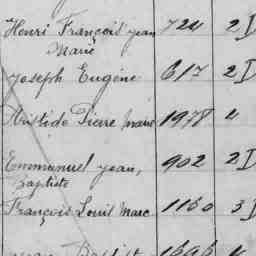 Henri François Jean 724 2 D
Marie
Joseph Eugène 617 2 D
Aristide Pierre Marie 1978 "
Emmanuel Jean, 902 2 D
Baptiste
François Louis Marc 1160 3 D
Baptist 1696 "